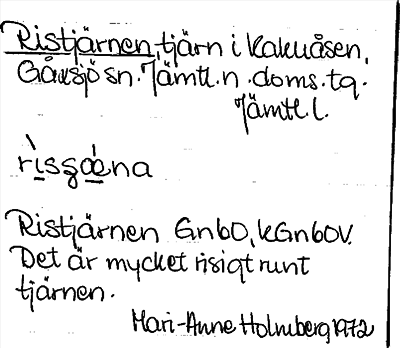 Ristjärnen, tjärn i Kakuåsen,
Gåxsjö sn. Jämtl. n. doms. tg.
Jämtl. l.
rìsşœ́na
Ristjärnen Gnb0, kGnb0V.
Det är mycket risigt runt
tjärnen.
Mari-Anne Holmberg 1972